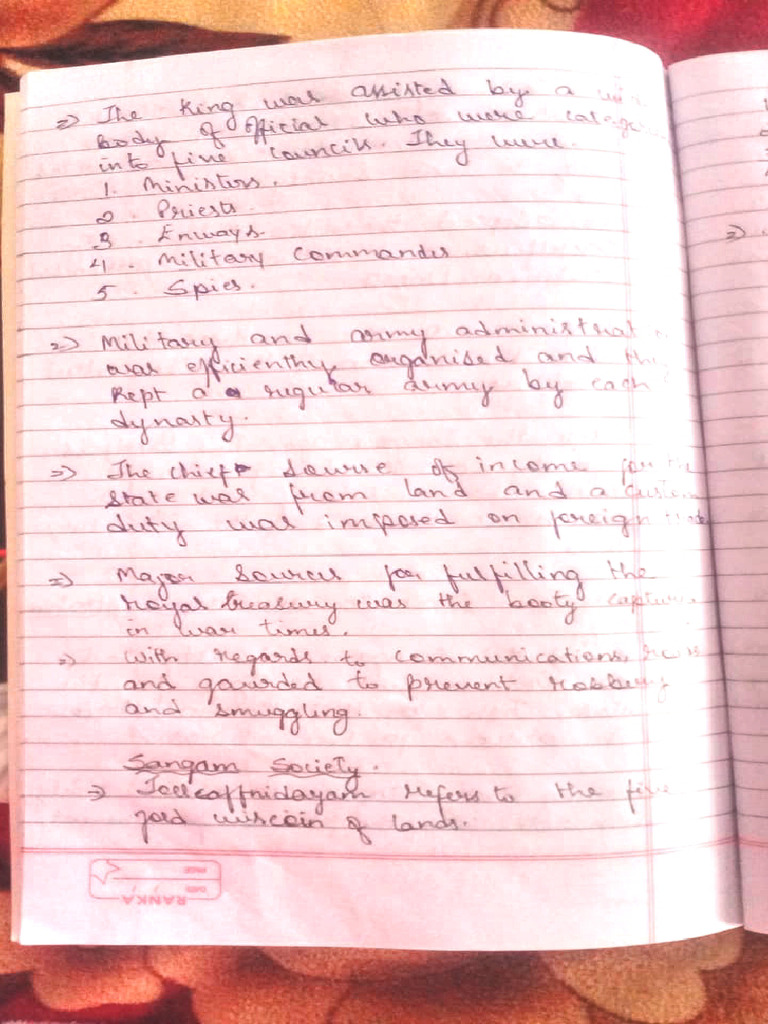 => The King was assisted by a
body of official who were
into five councils. They were.
1. Ministors.
2. Priests.
3. Enways.
4. Military Commandes
5. Spies.
=> Military and army administrat
was efficienthy organised and
Kept a regular army by each
dynasty.
=> The chief source of income for the
state was from land and a custom
duty was imposed on foreign trade
=> Major sources for fulfilling the
royal treasury was the booty captur
in war times.
=> With regards to communications,
and gaurded to prevent robbery
and smuggling.
Sangam Society.
=> refers to the five
of lands.
PAGE
DATE
RANKA
=>